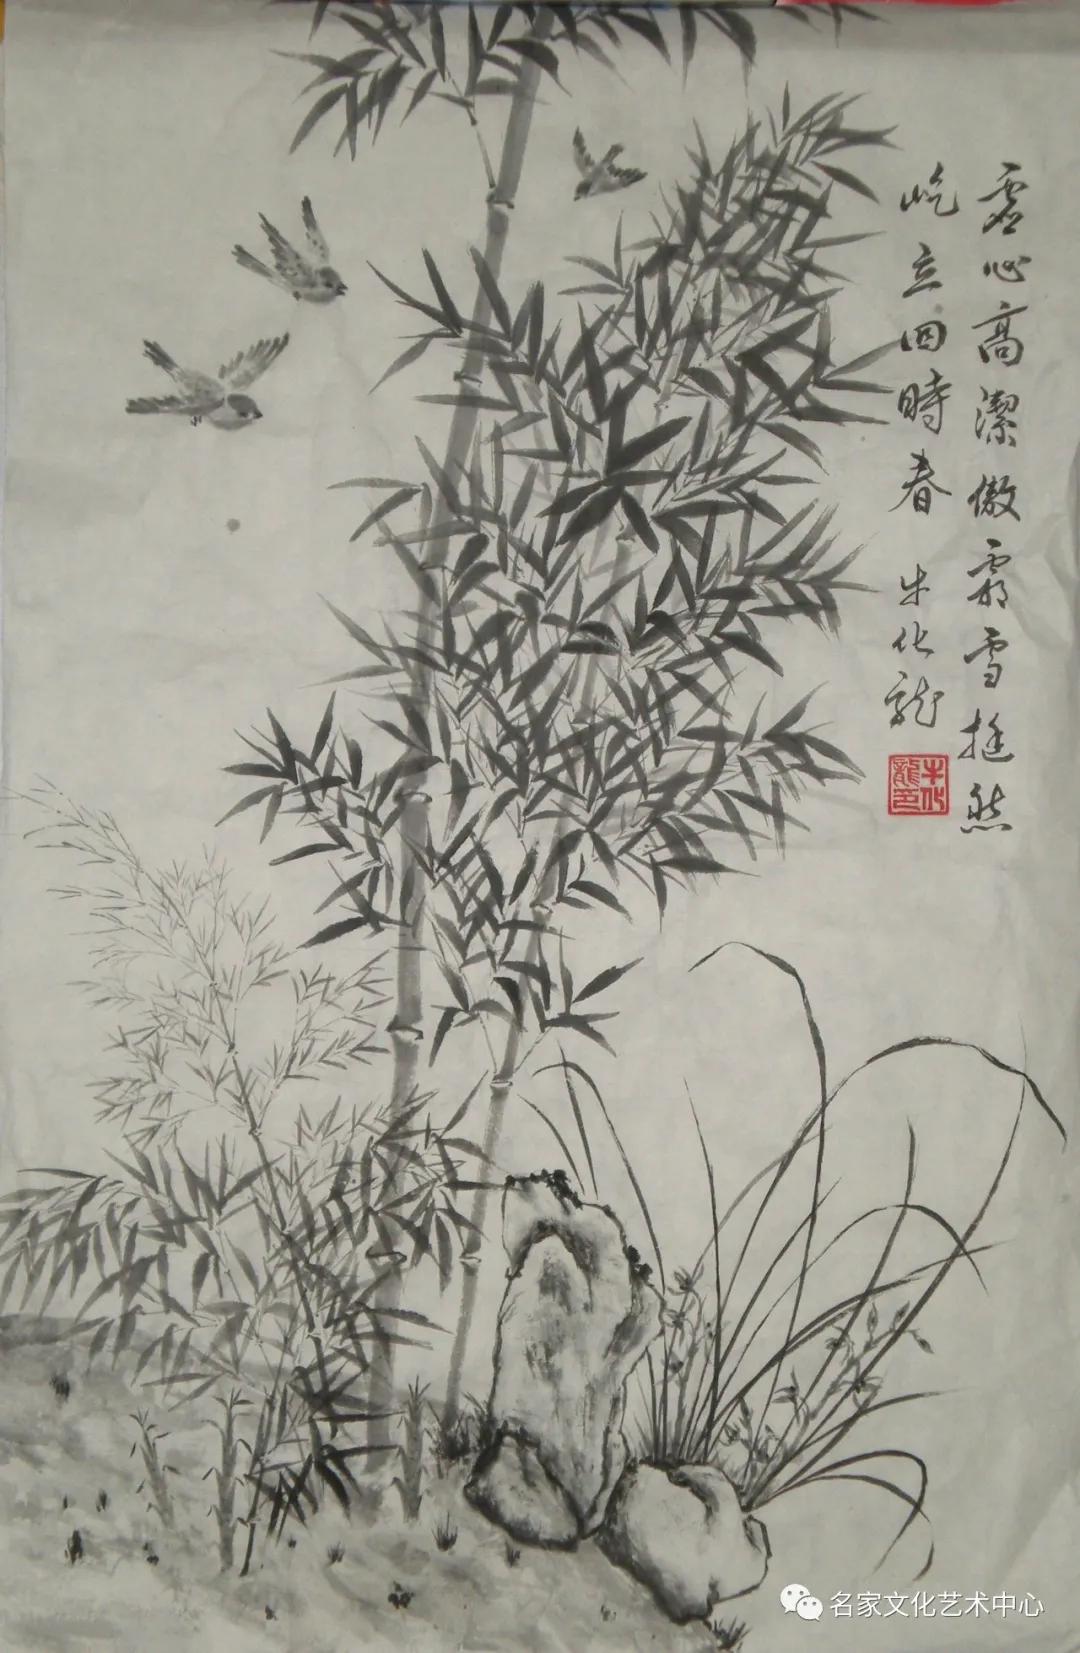 虚心高潔傲霜雪挺然
屹立四時春 牛化龍
牛化龍印
名家文化艺术中心